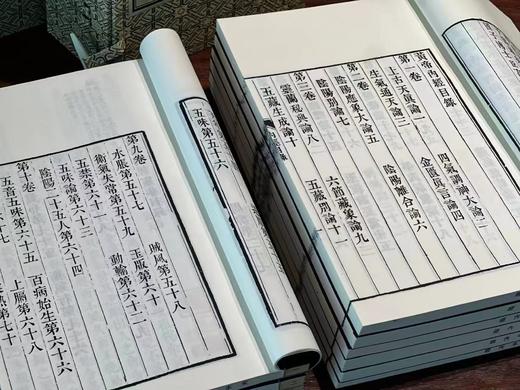 黃帝內經目錄
第一卷
上古天眞論一　四氣調神大論二
生氣通天論三　金匱眞言論四
第二卷
陰陽應象大論五　陰陽離合論六
陰陽別論七
第三卷
靈蘭秘典論八　六節藏象論九
五藏生成論十　五藏別論十一
五味第五十六
第九卷
水脹第五十七　賊風第五十八
衞氣失常第五十九　玉版第六十
五禁第六十一　動輸第六十二
五味論第六十三
陰陽二十五人第六十四
第十卷
五音五味第六十五　百病始生第六十六
上膈第六十八
熱第七十